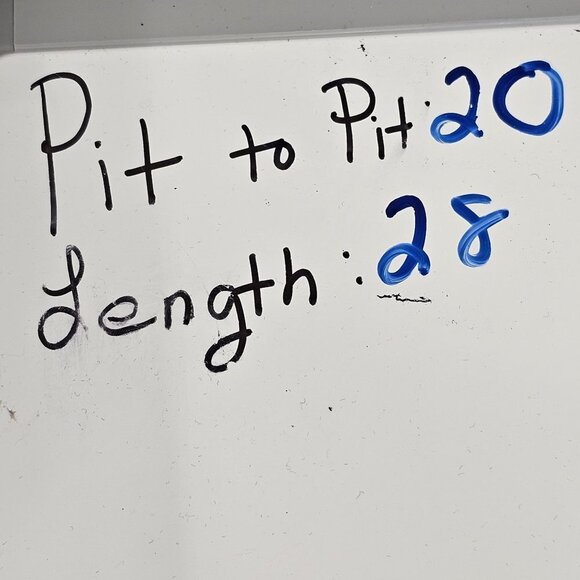 Pit to Pit: 20
Length: 28